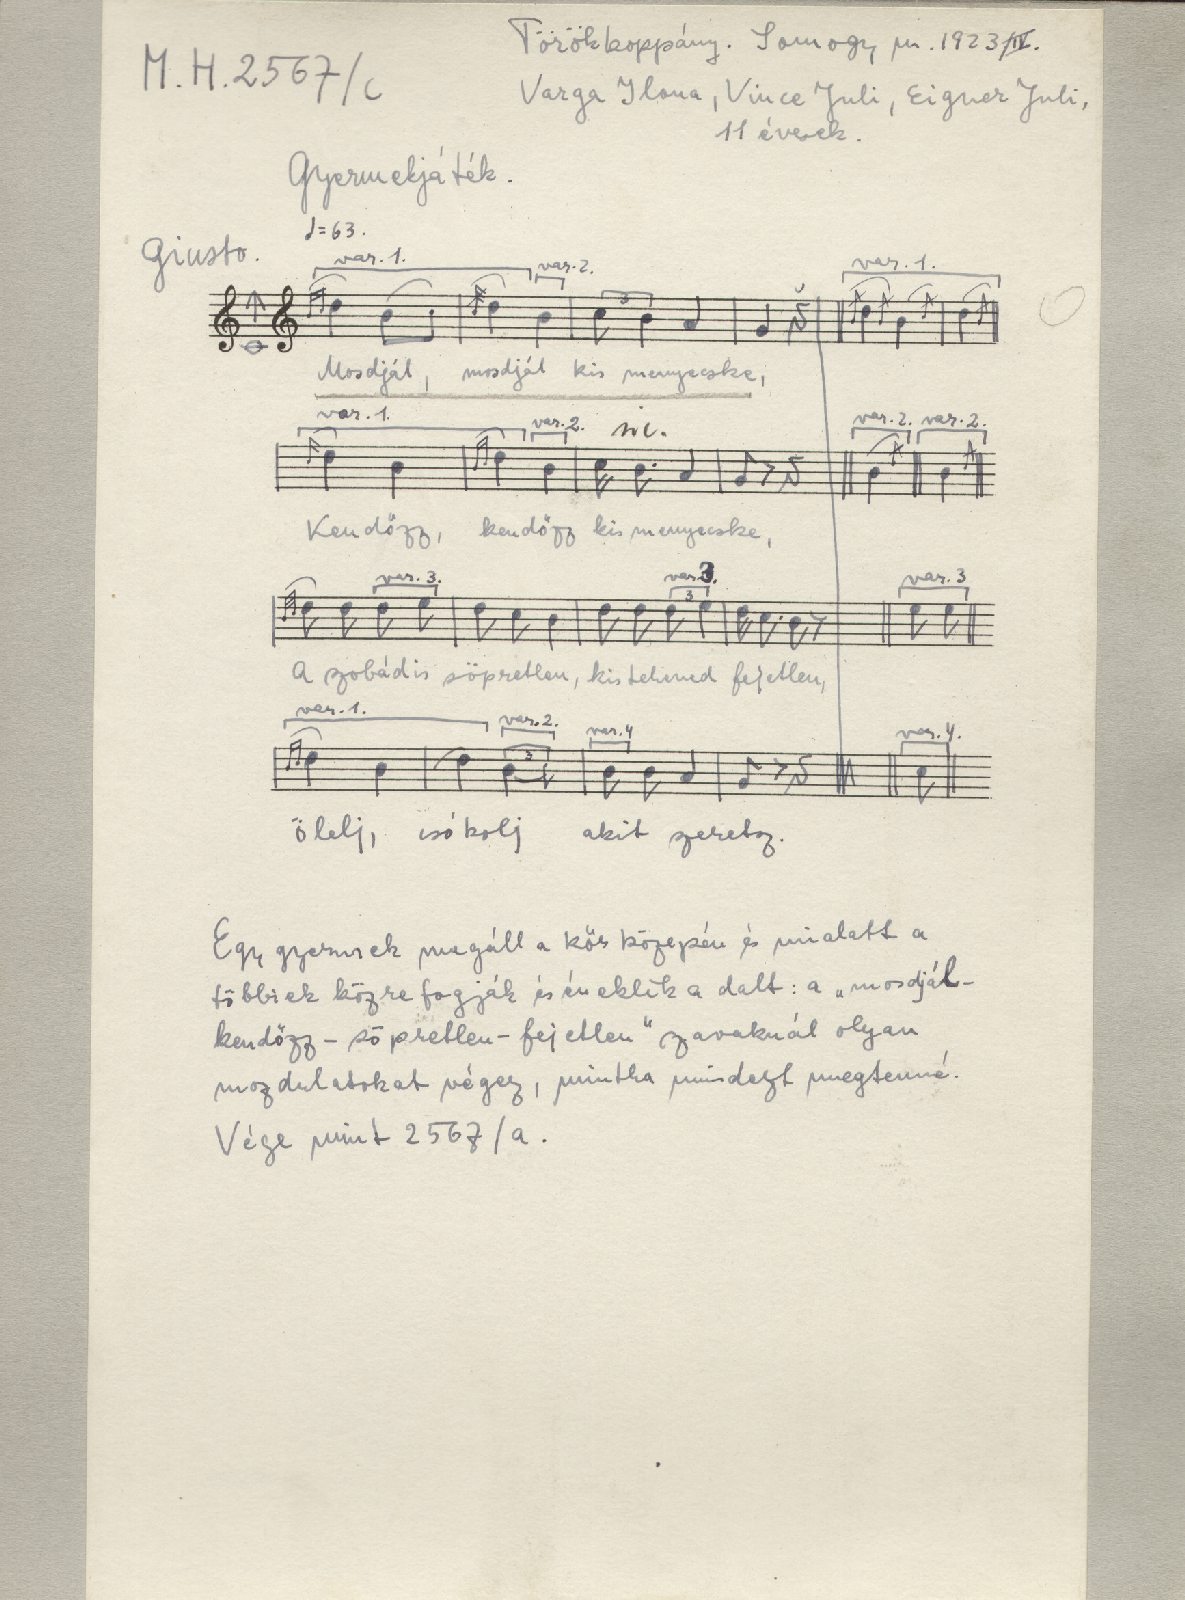 M. H. 2567/c
Törökkoppány. Somogy m. 1923/IV.
Varga Ilona, Vince Juli, Eigner Juli,
11 évesek.
Gyermekjáték.
♩=63.
Giusto.
var. 1. var. 2. var. 1.
3
Mosdjál, mosdjál kis menyecske,
var. 1. var. 2. sic. var. 2. var. 2.
Kendőzz, kendőzz kis menyecske,
var. 3. var. 3. var. 3
3
A szobádis söpretlen, kistehened fejetlen,
var. 1. var. 2. var. 4 var. 4.
3
Ölelj, csókolj akit szeretsz.
Egy gyermek megáll a kör közepén és mialatt a
többiek közrefogják és éneklik a dalt: a „mosdjál-
kendőzz - söpretlen - fejetlen" szavaknál olyan
mozdulatokat végez, mintha mindezt megtenné.
Vége mint 2567/a.